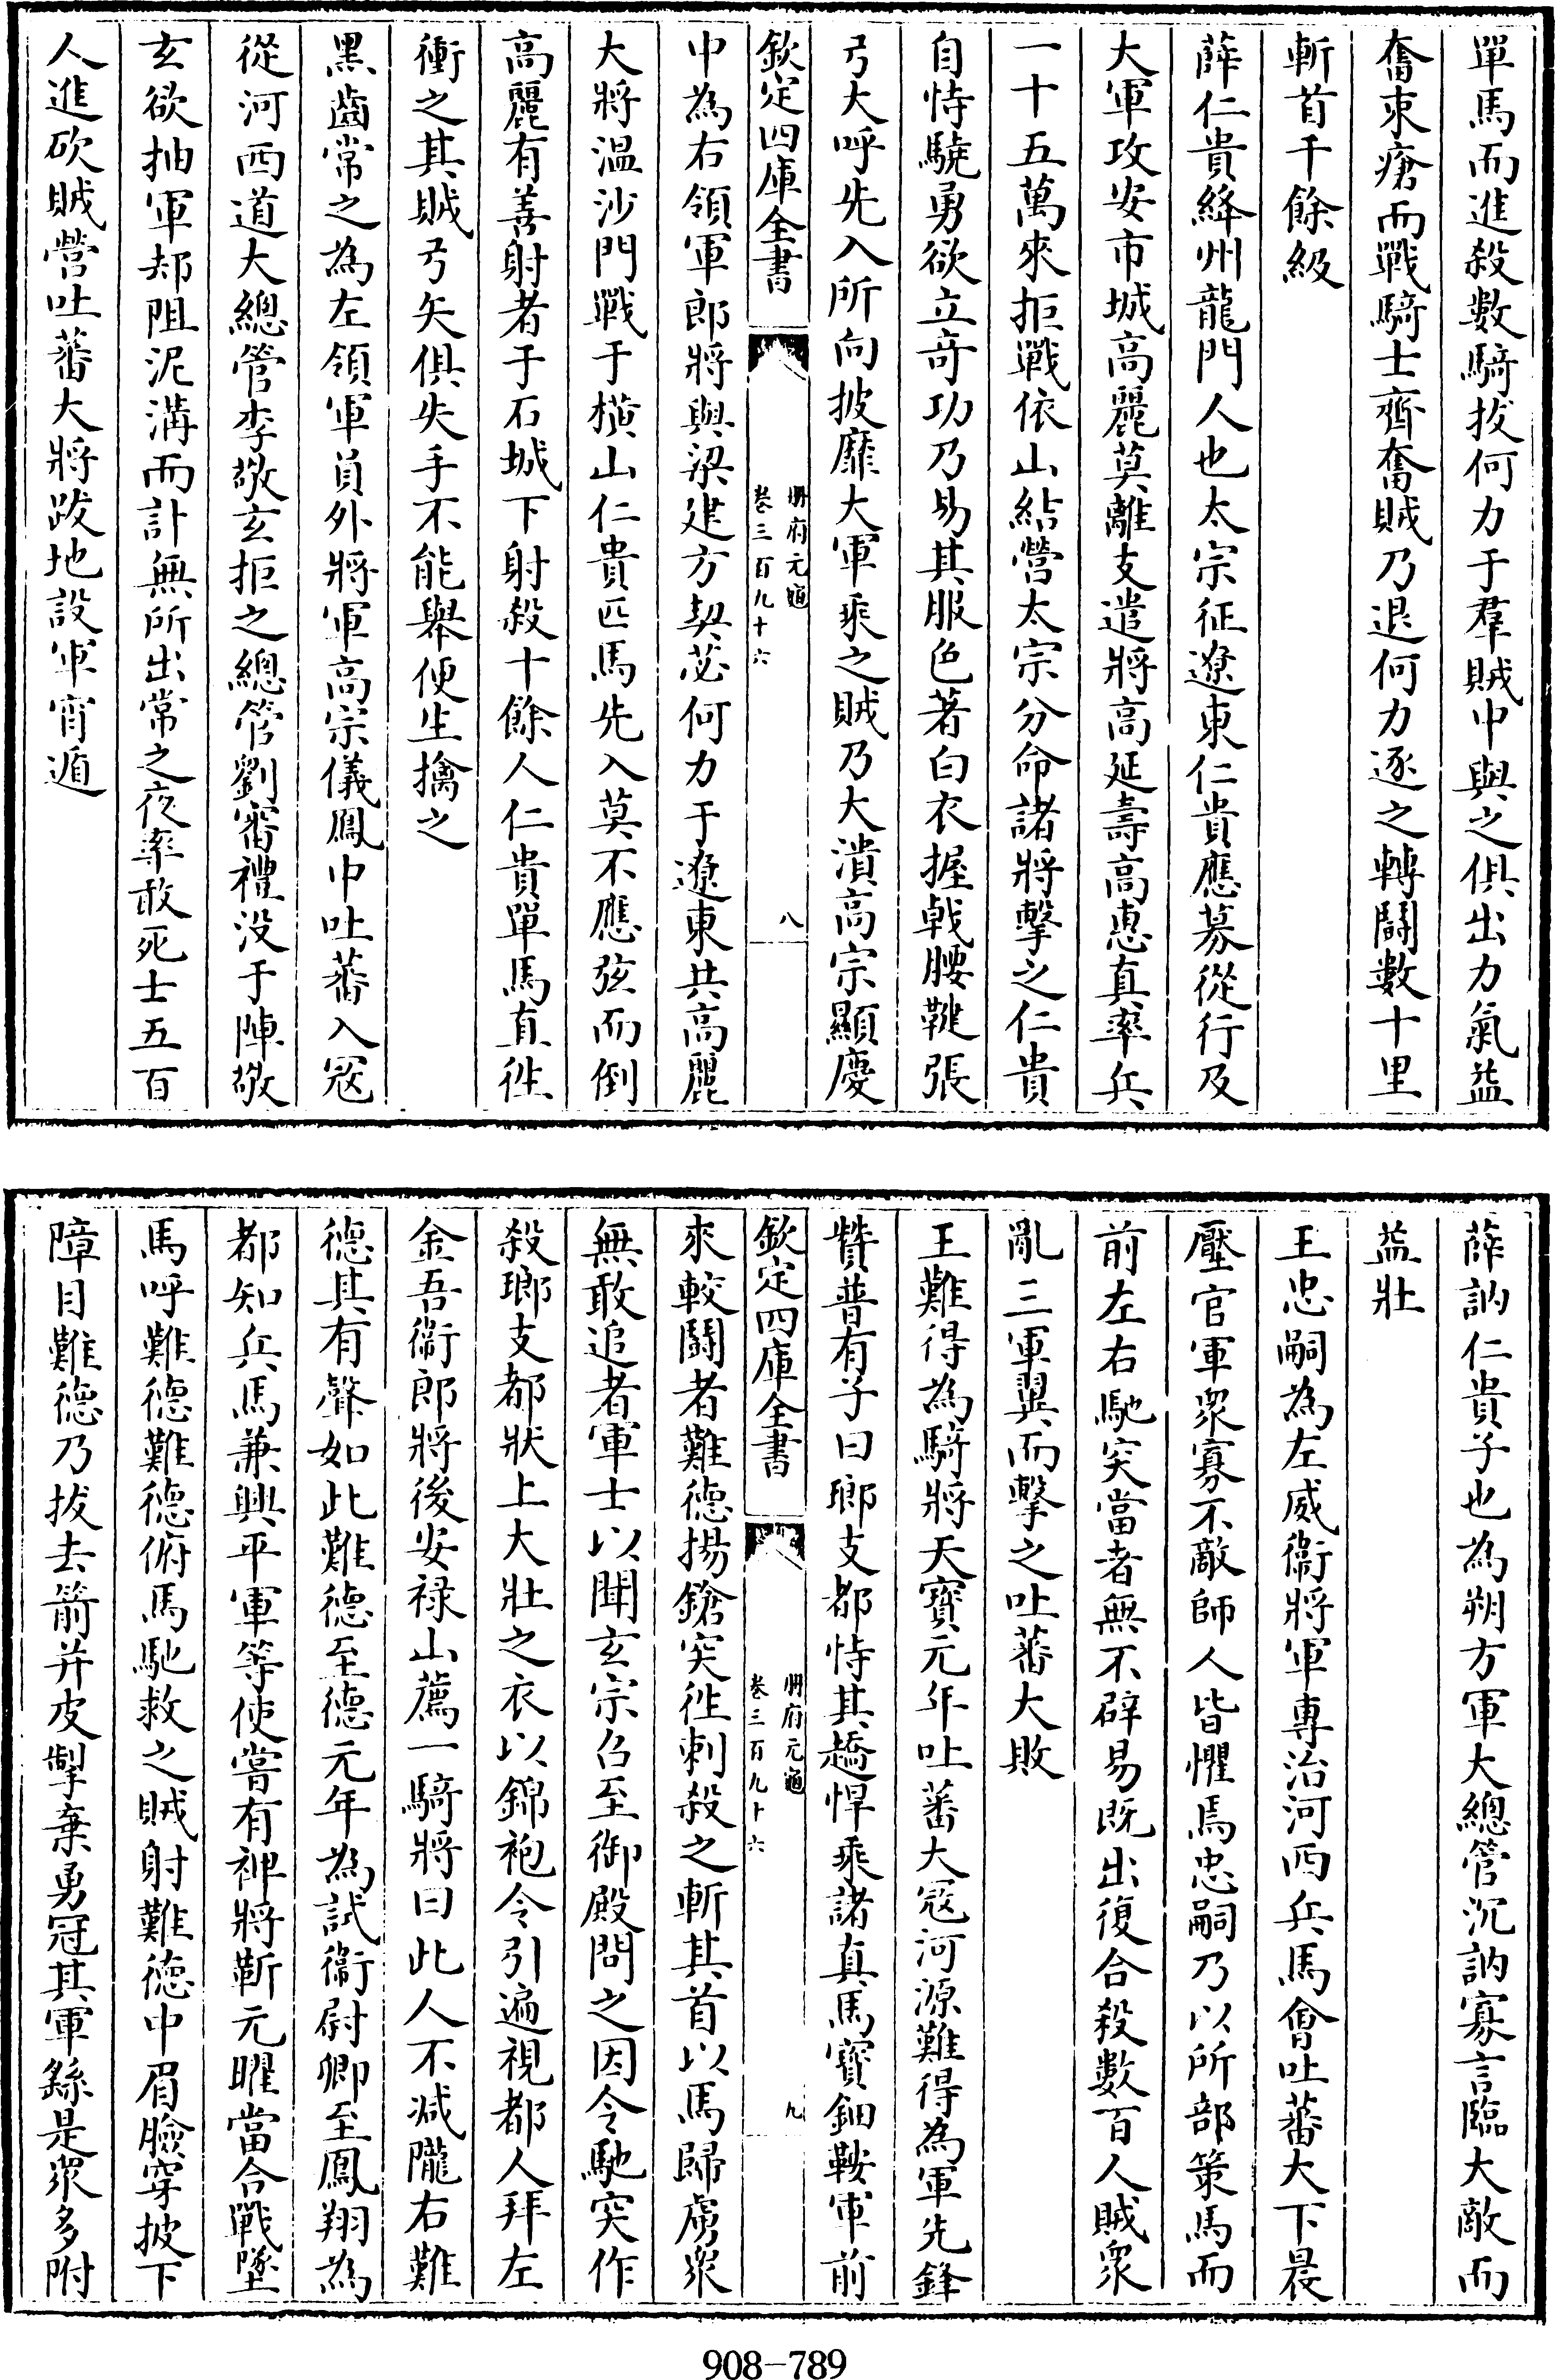 單馬而進殺數騎拔何力于羣賊中與之俱出力氣益
奮束瘡而戰騎士齊奮賊乃退何力逐之轉鬭數十里
斬首千餘級
薛仁貴絳州龍門人也太宗征遼東仁貴應募從行及
大軍攻安市城高麗莫離支遣將高延壽高惠真率兵
一十五萬來拒戰依山結營太宗分命諸將擊之仁貴
自恃驍勇欲立竒功乃易其服色著白衣握戟腰鞬張
弓大呼先入所向披靡大軍乘之賊乃大潰高宗顯慶
欽定四庫全書
冊府元龜
卷三百九十六
八
中為右領軍郎將與梁建方契苾何力于遼東共高麗
大將溫沙門戰于橫山仁貴匹馬先入莫不應弦而倒
高麗有善射者于石城下射殺十餘人仁貴單馬直徃
衝之其賊弓矢俱失手不能舉便生擒之
黑齒常之為左領軍員外將軍高宗儀鳳中吐蕃入冦
從河西道大總管李敬玄拒之總管劉審禮没于陣敬
玄欲抽軍却阻泥溝而計無所出常之夜率敢死士五百
人進砍賊營吐蕃大將跋地設軍宵遁
薛訥仁貴子也為朔方軍大總管沉訥寡言臨大敵而
益壯
王忠嗣為左威衞將軍專治河西兵馬會吐蕃大下晨
壓官軍衆寡不敵師人皆懼焉忠嗣乃以所部策馬而
前左右馳突當者無不辟易既出復合殺數百人賊衆
亂三軍翼而擊之吐蕃大敗
王難得為騎將天寶元年吐蕃大冦河源難得為軍先鋒
贊普有子曰瑯支都恃其趫悍乘諸真馬寶鈿鞍軍前
欽定四庫全書
冊府元龜
卷三百九十六
九
來較鬭者難德揚鎗突徃刺殺之斬其首以馬歸虜衆
無敢追者軍士以聞玄宗召至御殿問之因令馳突作
殺瑯支都狀上大壯之衣以錦袍令引遍視都人拜左
金吾衞郎將後安禄山薦一騎將曰此人不減隴右難
德其有聲如此難德至德元年為試衞尉卿至鳳翔為
都知兵馬兼興平軍等使嘗有神將靳元曜當合戰墜
馬呼難德難德俯馬馳救之賊射難德中眉臉穿披下
障目難德乃拔去箭并皮掣棄勇冠其軍繇是衆多附
908-789